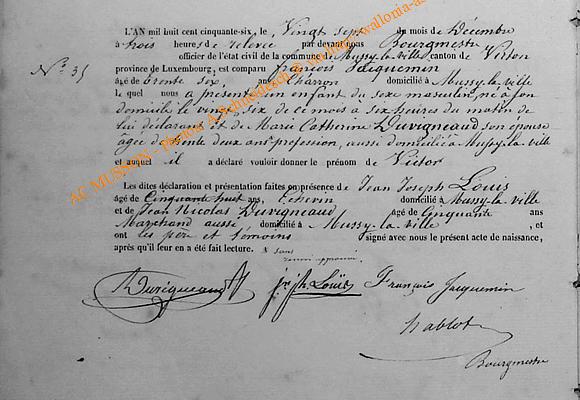 L'AN mil huit cent cinquante-six, le Vingt sept du mois de Décembre
à trois heures de relevée par devant nous Bourgmestre
officier de l'état civil de la commune de Mussy-la-ville, canton de Virton
N° 35 province de Luxembourg, est comparu françois Jacquemin
âgé de trente six ans Charron domicilié à Mussy-la-ville
le quel nous a présenté un enfant du sexe masculin, né à son
domicile le vingt six de ce mois à six heures du matin de
lui déclarant et de Marie Catherine Duvigneaud son épouse
agée de trente deux ans profession, aussi domiciliée à Mussy-la-ville
et auquel il a déclaré vouloir donner le prénom de Victor
Les dites déclaration et présentation faites en présence de Jean Joseph Louis
âgé de Cinquante huit ans, Echevin domicilié à Mussy-la-ville
et de Jean Nicolas Duvigneaud âgé de Cinquante ans
Marchand aussi domicilié à Mussy-la-ville, et
ont les père et témoins signé avec nous le présent acte de naissance,
après qu'il leur en a été fait lecture.
Duvigneaud J. Jph Louis François Jacquemin
Nablot
Bourgmestre
AC MUSSON - Photos A. Schmidesch @
wallonia-as